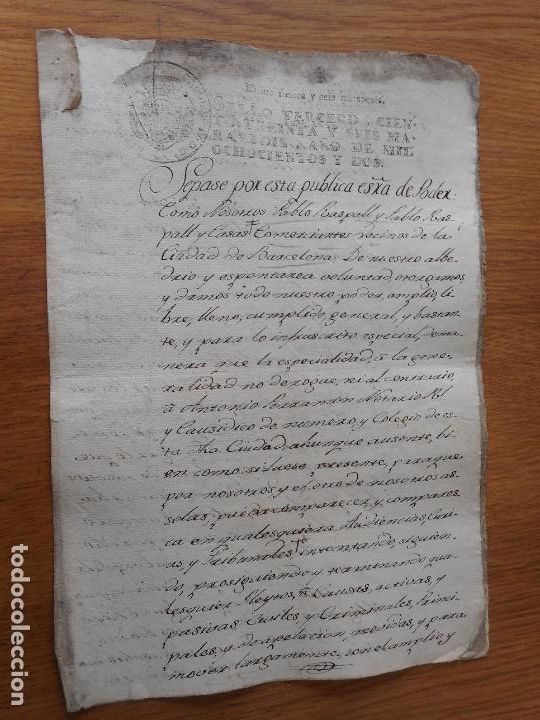 treinta y seis maravedis.
SELLO TERCERO, CIEN-
TO TREINTA Y SEIS MA-
RAVEDIS, AÑO DE MIL
OCHOCIENTOS Y DOS.
Sepase por esta publica essra de Poder
Como Nosotros Pablo Raspall y Pablo Ras-
pall y Casas Comerciantes vecinos de la
Ciudad de Barcelona: De nuestro albe-
drio y espontanea voluntad, otorgamos,
y damos todo nuestro poder, amplio, li-
bre, lleno, cumplido, general, y bastan-
te, y para lo infrascrito especial, de ma-
nera que la especialidad, à la gene-
ralidad no derogue, ni al contrario,
à Antonio Parramon Notario Rl
y Causidico de numero, y Colegio de es-
ta dha Ciudad, ahunque ausente, bi-
en como si fuese presente, paraque
por nosotros y el otro de nosotros as-
solas, pueda comparecer, y comparez-
ca en qualesquiera Audiencias, Curi-
as, y Tribunales, intentando, siguien-
do, prosiguiendo, y terminando qua-
lesquier Pleytos, Causas, activas, y
pasivas, Civiles, y Criminales, Princi-
pales, y de apelacion, movidas, y para
mover largamente, con el amplio, y
todocoleccion.net